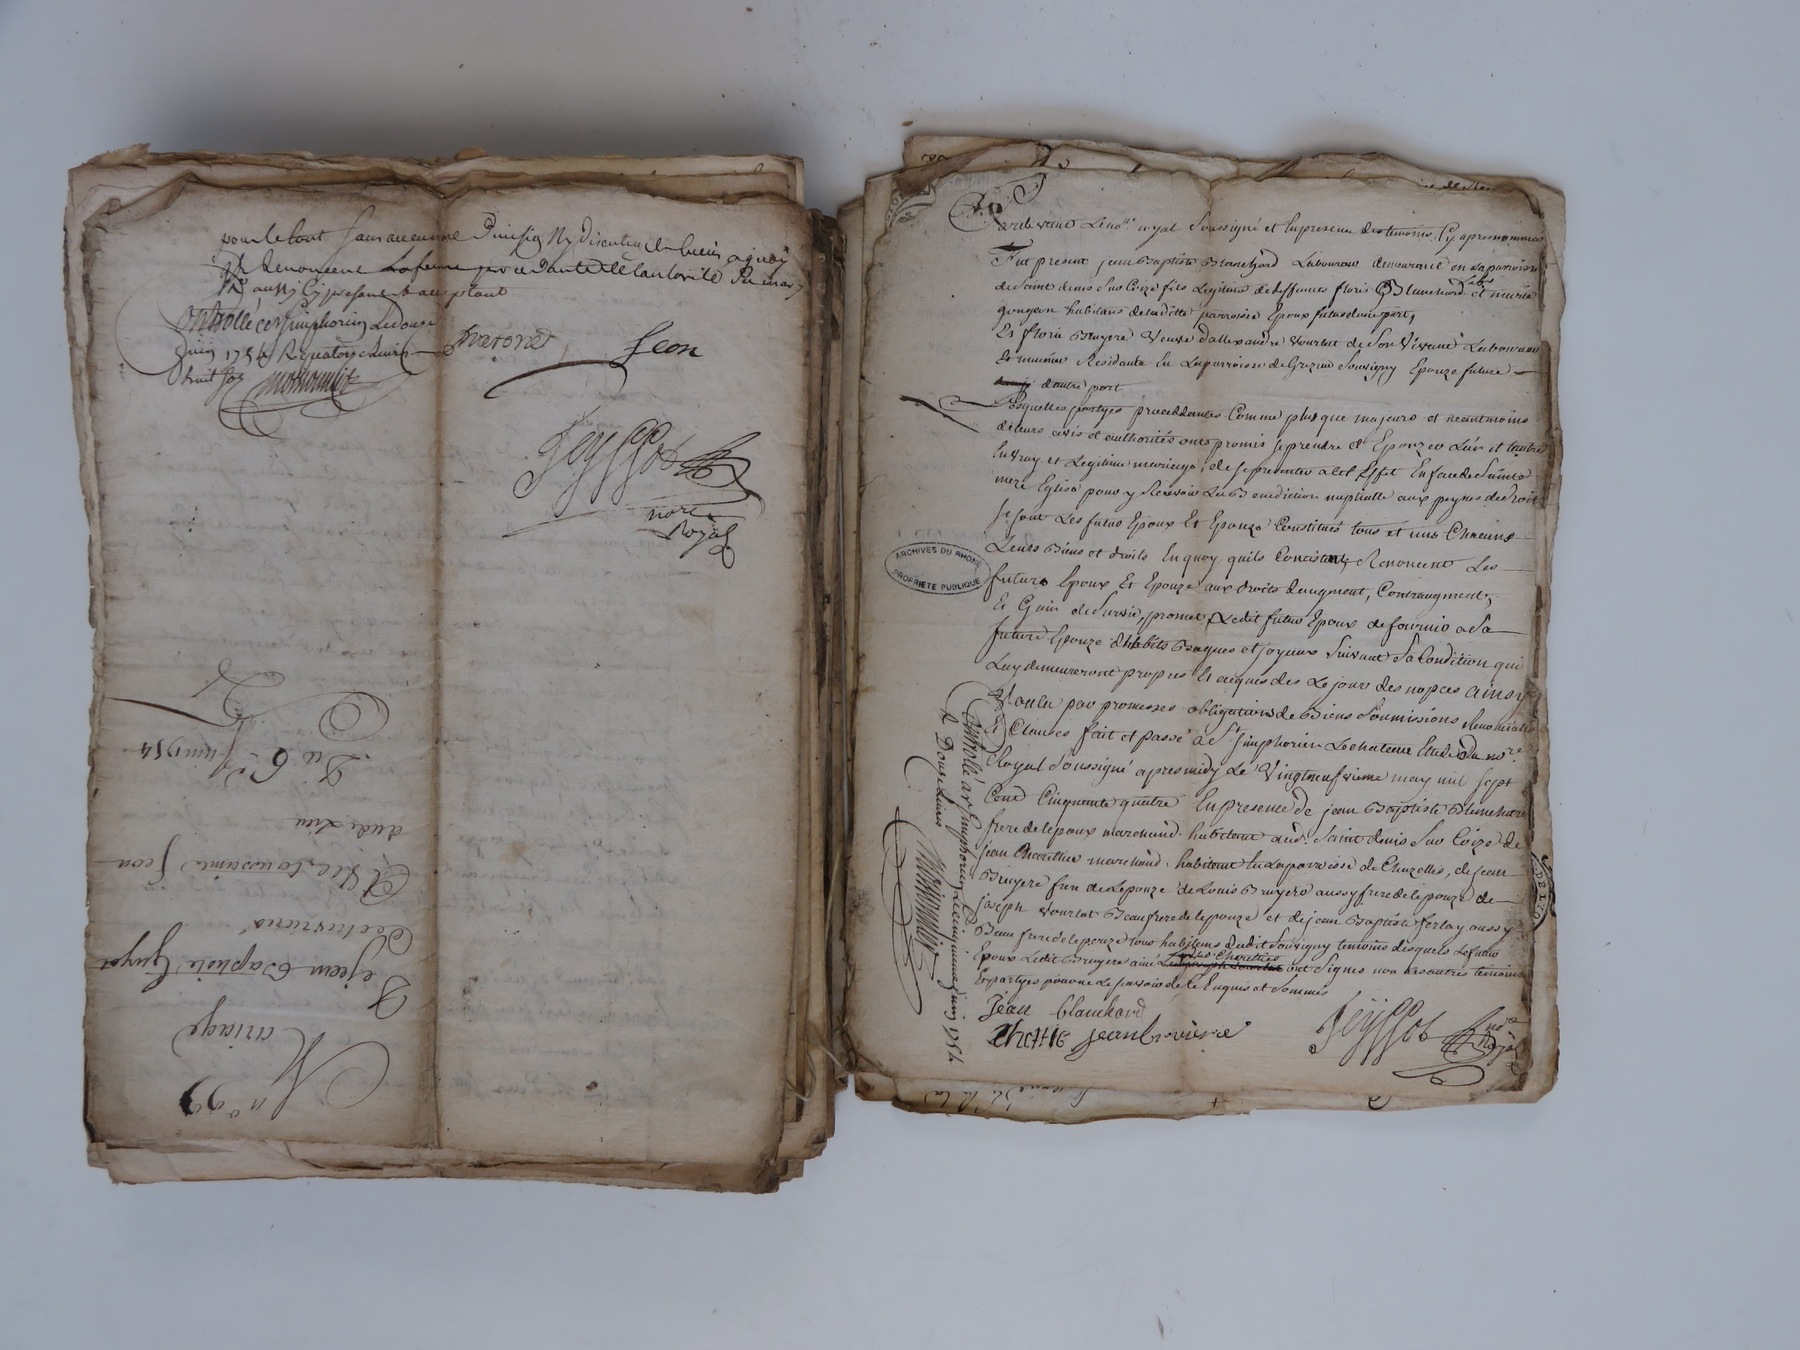 pour le tout sans aucunne Division Ny Discution de biens a quoy
ils Renoncent La femme procedante de Lautorité Du mary
aussy Cy present & acceptant
Controllé a st simphorien Le douse
juin 1754 R quatorze Livres
huit sols
feon
Peyssot
nore
Royal
n° 99
Mariage
De jean Baptiste Guyot
Cochuriaud
Et de toussaine feon
dudt Lieu
Du 6e juin 1754
Pardevant Le nore royal Soussigné et En presence des temoins Cy apres nommés
Fut present jean Baptiste Blanchard Laboureur demeurant en la parroisse
de Saint denis Sur Coize fils Legitime de deffuncts floris Blanchard et marie
goujeon habitants de laditte parroisse Epoux futur d'une part,
Et florie Bruyere Veuve d'allexandre Vourlat de Son Vivant Laboureur
Residante En La parroisse de Grezieu Souvigny Epouze future
d'autre part
Lesquelles partyes proceddantes Comme plus que majeurs et neantmoins
de leurs avis et authorités ont promis se prendre et Epouzer L'un et l'autre
En Vray et Legitime mariage, de se presenter a cet Effet En face de Sainte
mere Eglise pour y Recevoir La Benediction nuptialle aux peynes de droit
se sont Les futurs Epoux Et Epouze Constitués tous et uns Chacuns
Leurs Biens et droits En quoy quils Concistent, Renoncent Les
futurs Epoux Et Epouze aux droits daugment, Contraugment,
Et Gain de Survie, promet Ledit futur Epoux de fournir a Sa
future Epouze d'habits Bagues et joyaux Suivant Sa Condition qui
Luy demeureront propres Et acquis des Le jour des nopces ainsy
Voulu par promesses obligations de Biens Soumissions Renonciations
Clauses fait et passé a St Simphorien Le chateau Etude Du nore
Royal Soussigné apres midy Le Vingtneufvieme may mil sept
Cent Cinquante quatre En presence de jean Baptiste Blanchard
frere de lepoux marchand habitant aud. Saint denis Sur Coize de
jean Charettier marchand habitant En La parroisse de Chazelles, de jean
Bruyere frere de Lepouze de Louis Bruyere aussy frere de lepouze de
joseph Vourlat Beaufrere de lepouze et de jean Baptiste ferlay aussy
Beau frere de lepouze tous habitans dudit Souvigny temoins desquels Le futur
Epoux Ledit Bruyere ainé ont Signés non Les autres temoins
Et partyes pour ne Le sçavoir de ce Enquis et Sommés
jean blanchard
jean bruiere
Peyssot nore Royal
Controllé a st simphorien Le cinquieme juin 1754
R Douze Livres
ARCHIVES DU RHONE
PROPRIETE PUBLIQUE